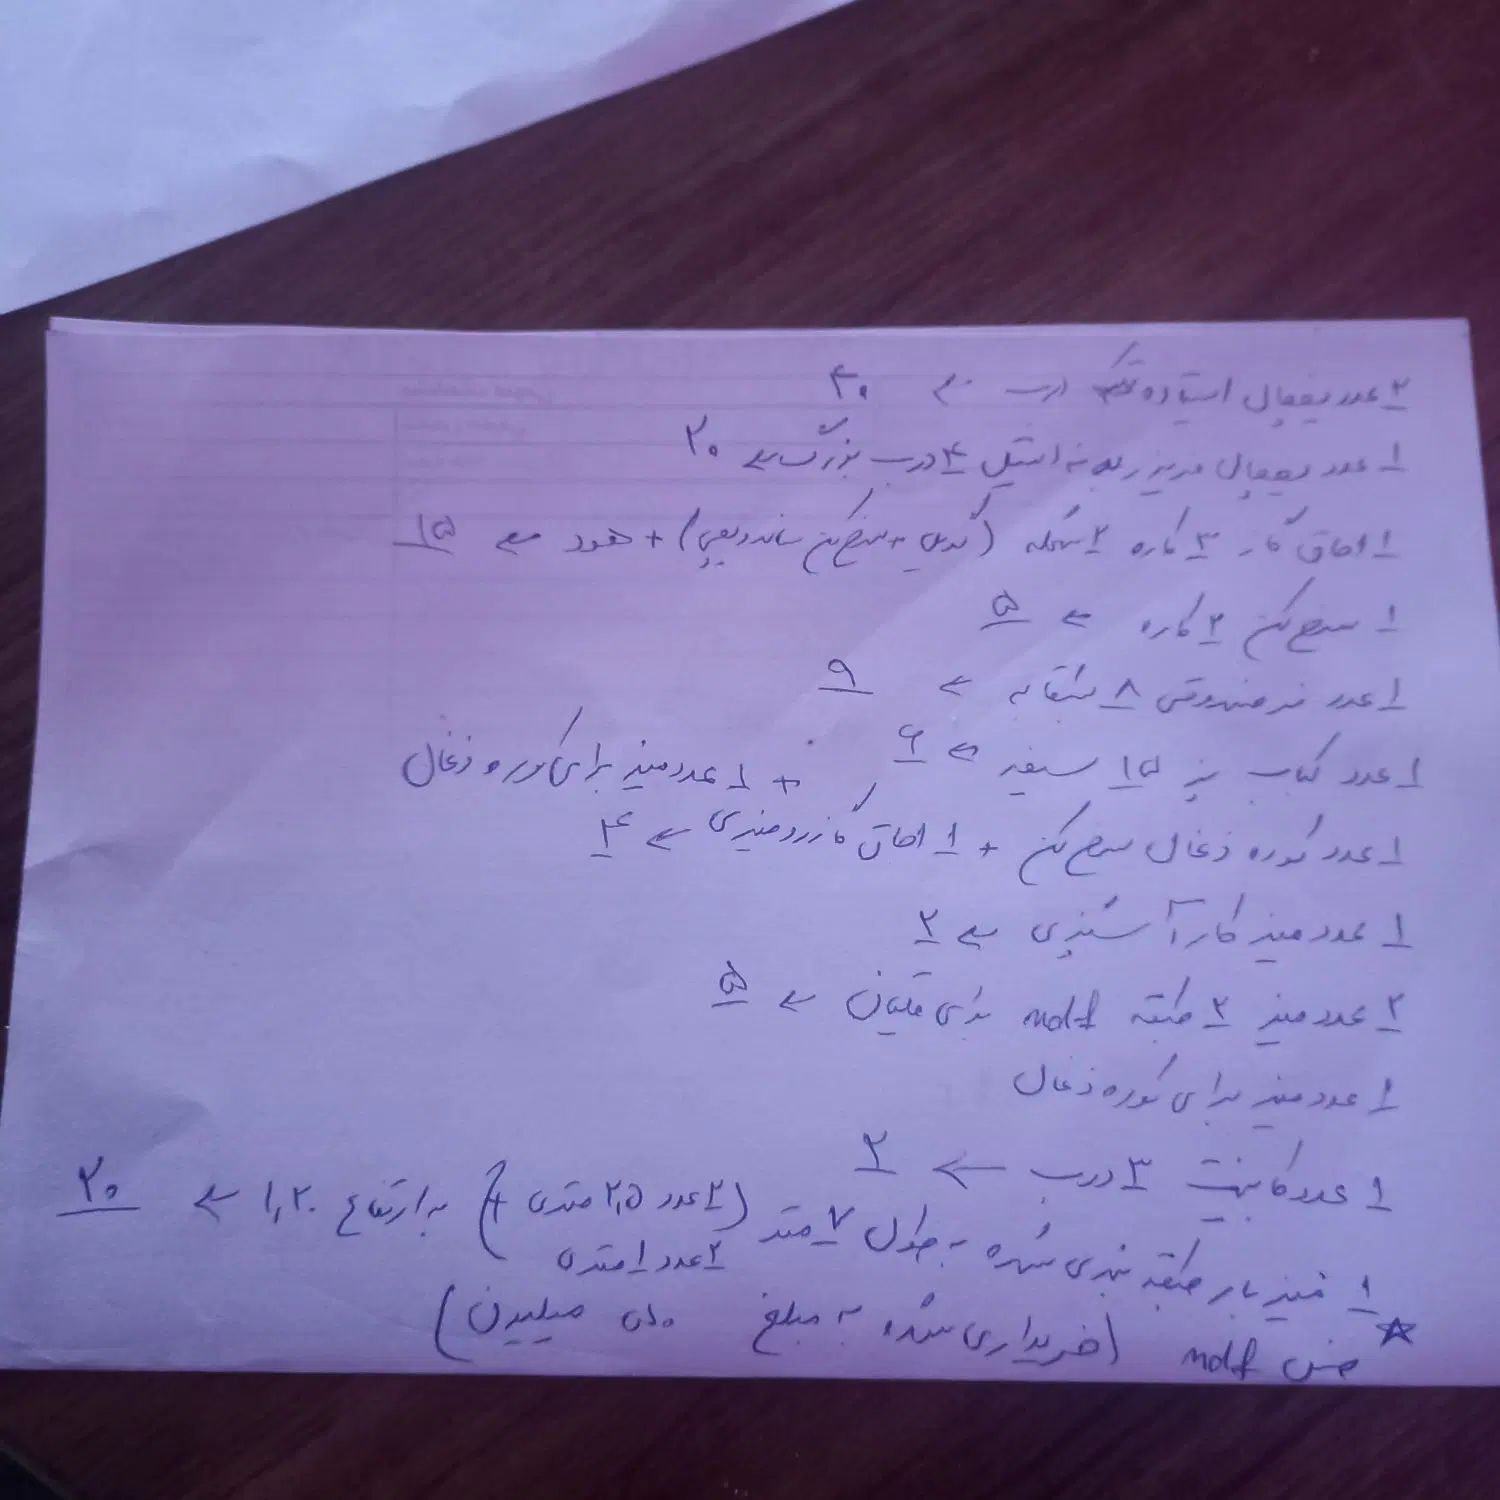 ۲ عدد یخچال ایستاده تک درب ← ۴۰
۱ عدد یخچال فریزر بدنه استیل ۴ درب بزرگ ← ۲۰
۱ اجاق گاز ۳ کاره ۲ شعله (گریل + سرخ کن ساندویچی) + هود ← ۱۵
۱ سرخ کن ۲ کاره ← ۵
۱ عدد فر صندوقی ۸ شقابه ← ۹
۱ عدد کباب پز ۱۵ سیخه ← ۶ + ۱ عدد میز برای کوره ذغال
۱ عدد کوره ذغال سرخ کن + ۱ اجاق گاز رومیزی ← ۴
۱ عدد میز کار آشپزی ← ۲
۲ عدد میز ۲ طبقه mdf برای قلیان ← ۵
۱ عدد میز برای کوره ذغال
۱ عدد کابینت ۳ درب ← ۲
۱ میز بار طبقه بندی شده به طول ۷ متر (۲ عدد ۲,۵ متری + ۲ عدد ۱ متری) به ارتفاع ۱,۲۰ ← ۲۰
جنس mdf (خریداری شده به مبلغ میلیون)